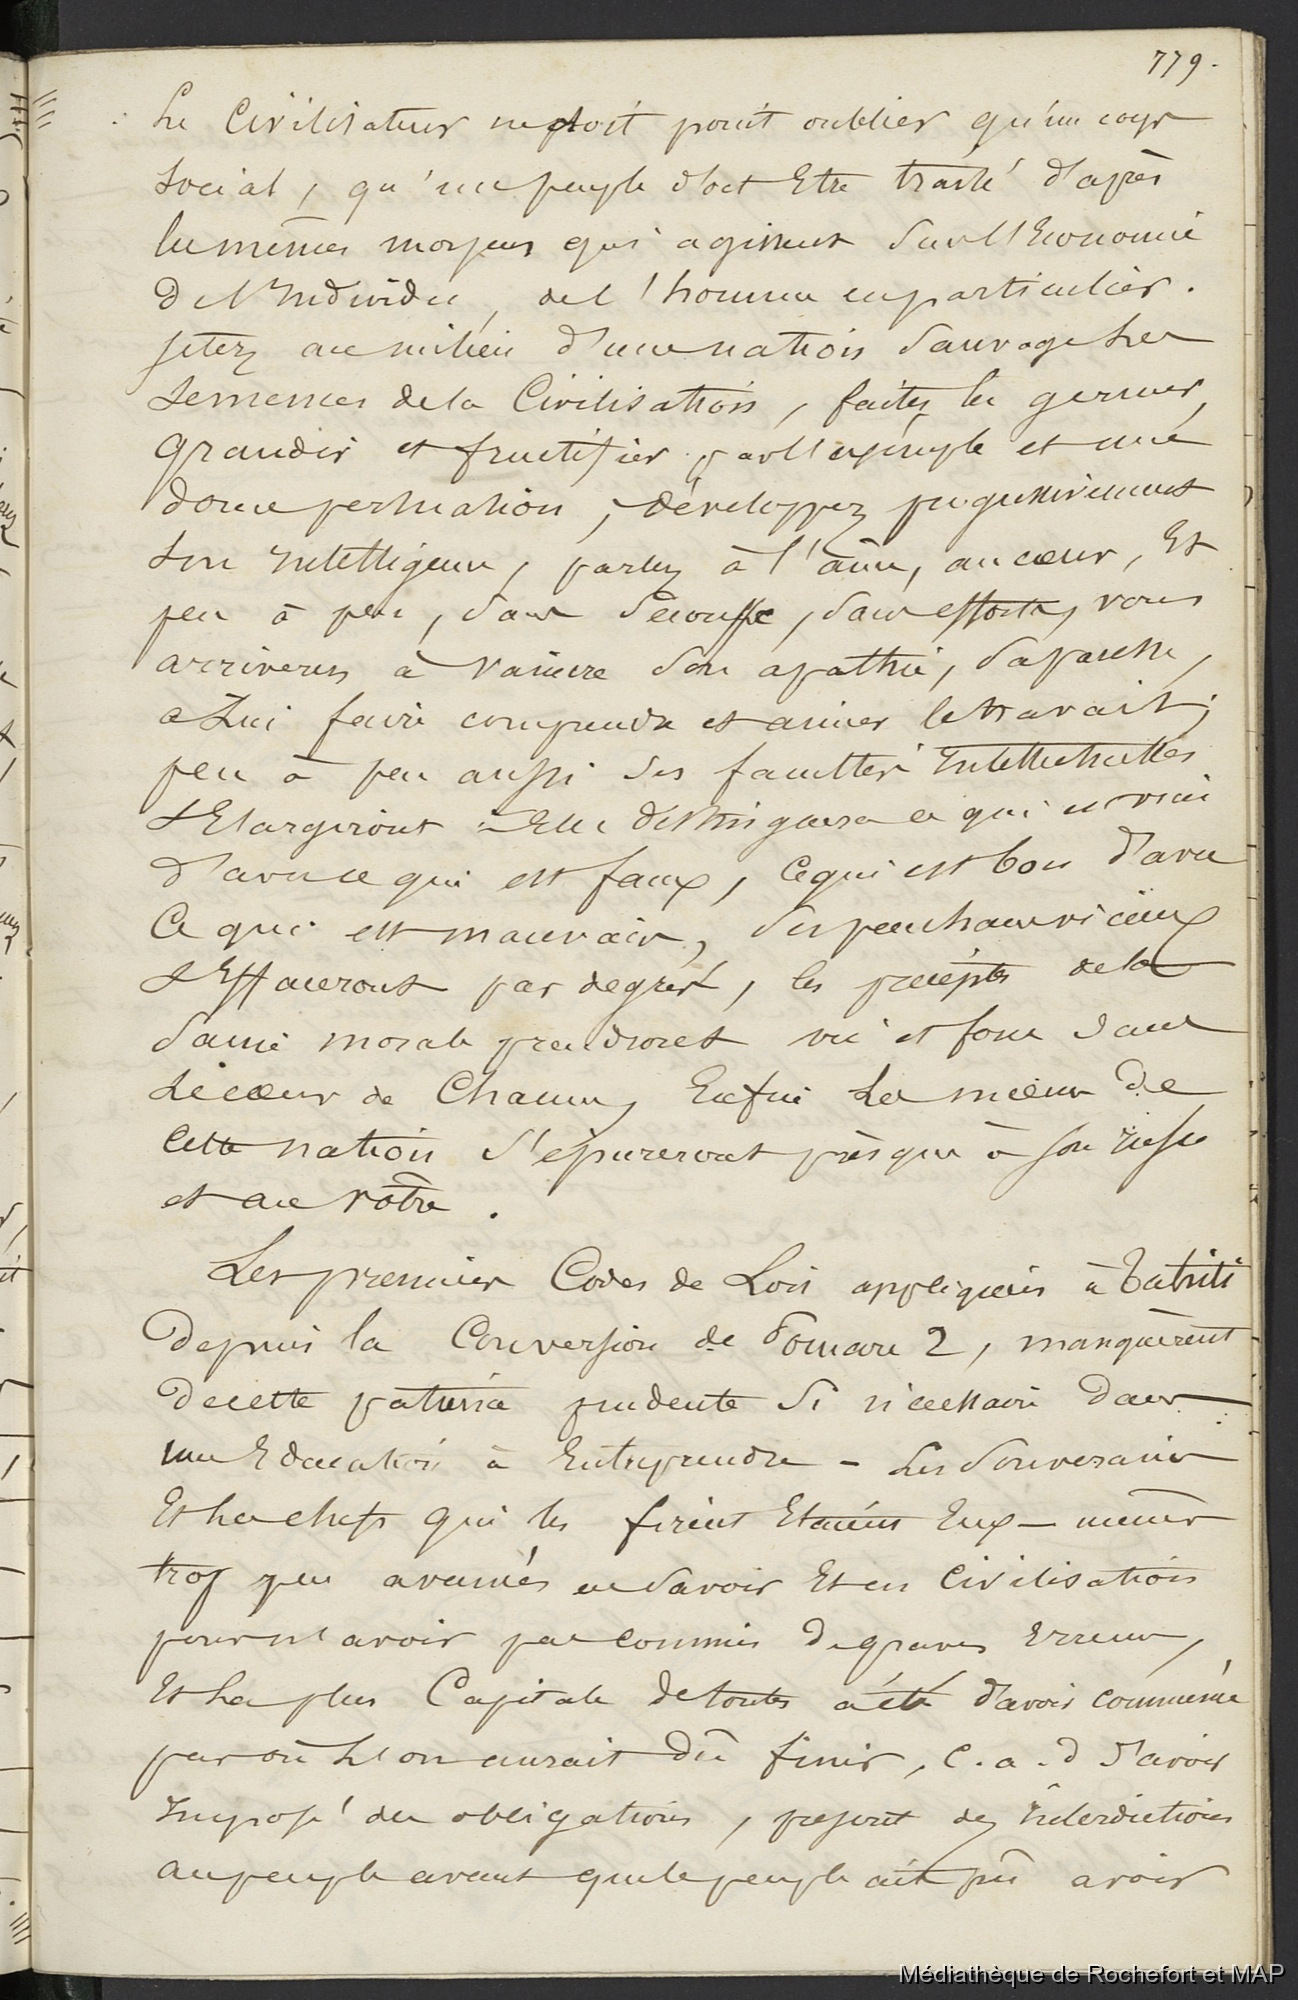 779.
Le Civilisateur ne doit point oublier qu'un corps
social, qu'un peuple doit Etre traité d'après
les mêmes moyens qui agissent sur l'Economie
De l'Individu, de l'homme en particulier.
jetez au milieu d'une nation sauvage Les
semences de la Civilisation, faites les germer,
grandir et fructifier par l'exemple et une
douce persuation, développez progressivement
son Intelligence, parlez à l'âme, au cœur, Et
peu à peu, sans secousse, sans efforts, vous
arriverez à vaincre son apathie, sa paresse,
a Lui faire comprendre et aimer le travail;
peu à peu aussi ses facultés Intellectuelles
s'Elargiront - Elle distinguera ce qui est vrai
d'avec ce qui est faux, ce qui est bon d'avec
Ce qui est mauvais, ses penchans vicieux
s'Effaceront par degrés, les préceptes de la
saine morale prendront vie et force dans
Le cœur de Chacun, Enfin Les mœurs De
Cette nation s'épureront presque à son insu
et au vôtre.
Les premiers Codes de Lois appliqués à Tahiti
Depuis la Conversion de Pomare 2, manquèrent
De cette patience prudente si nécessaire Dans
une Education à Entreprendre - Les Souverains
Et Les chefs qui les firent Etaient Eux-mêmes
trop peu avancés en savoir Et en Civilisation
pour n'avoir pas commis De graves Erreurs,
Et La plus Capitale de toutes a été d'avoir commencé
par où L'on aurait Dû finir, C.a.d d'avoir
Imposé des obligations, prescrit des Interdictions
au peuple avant que le peuple ait pû avoir
Médiathèque de Rochefort et MAP